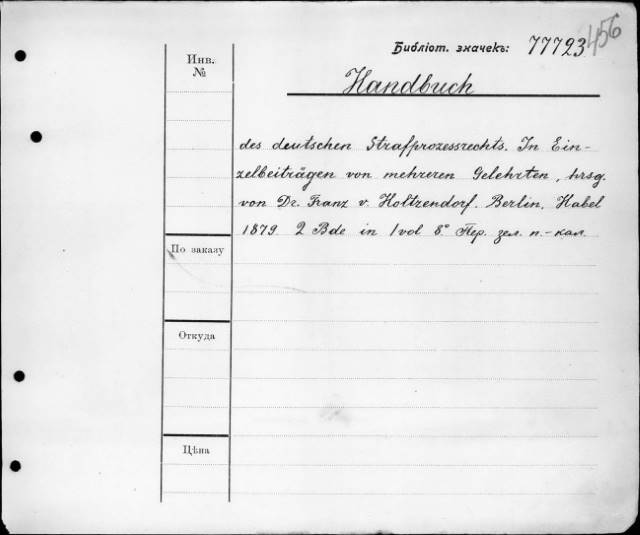 Библіот. значекъ: 77723
456
Инв.
№
Handbuch
des deutschen Strafprozessrechts. In Ein-
zelbeiträgen von mehreren Gelehrten, hrsg.
von Dr. Franz v. Holtzendorf. Berlin, Habel
1879 2 Bde in 1 vol 8° Пер. зел. п.-кал.
По заказу
Откуда
Цѣна